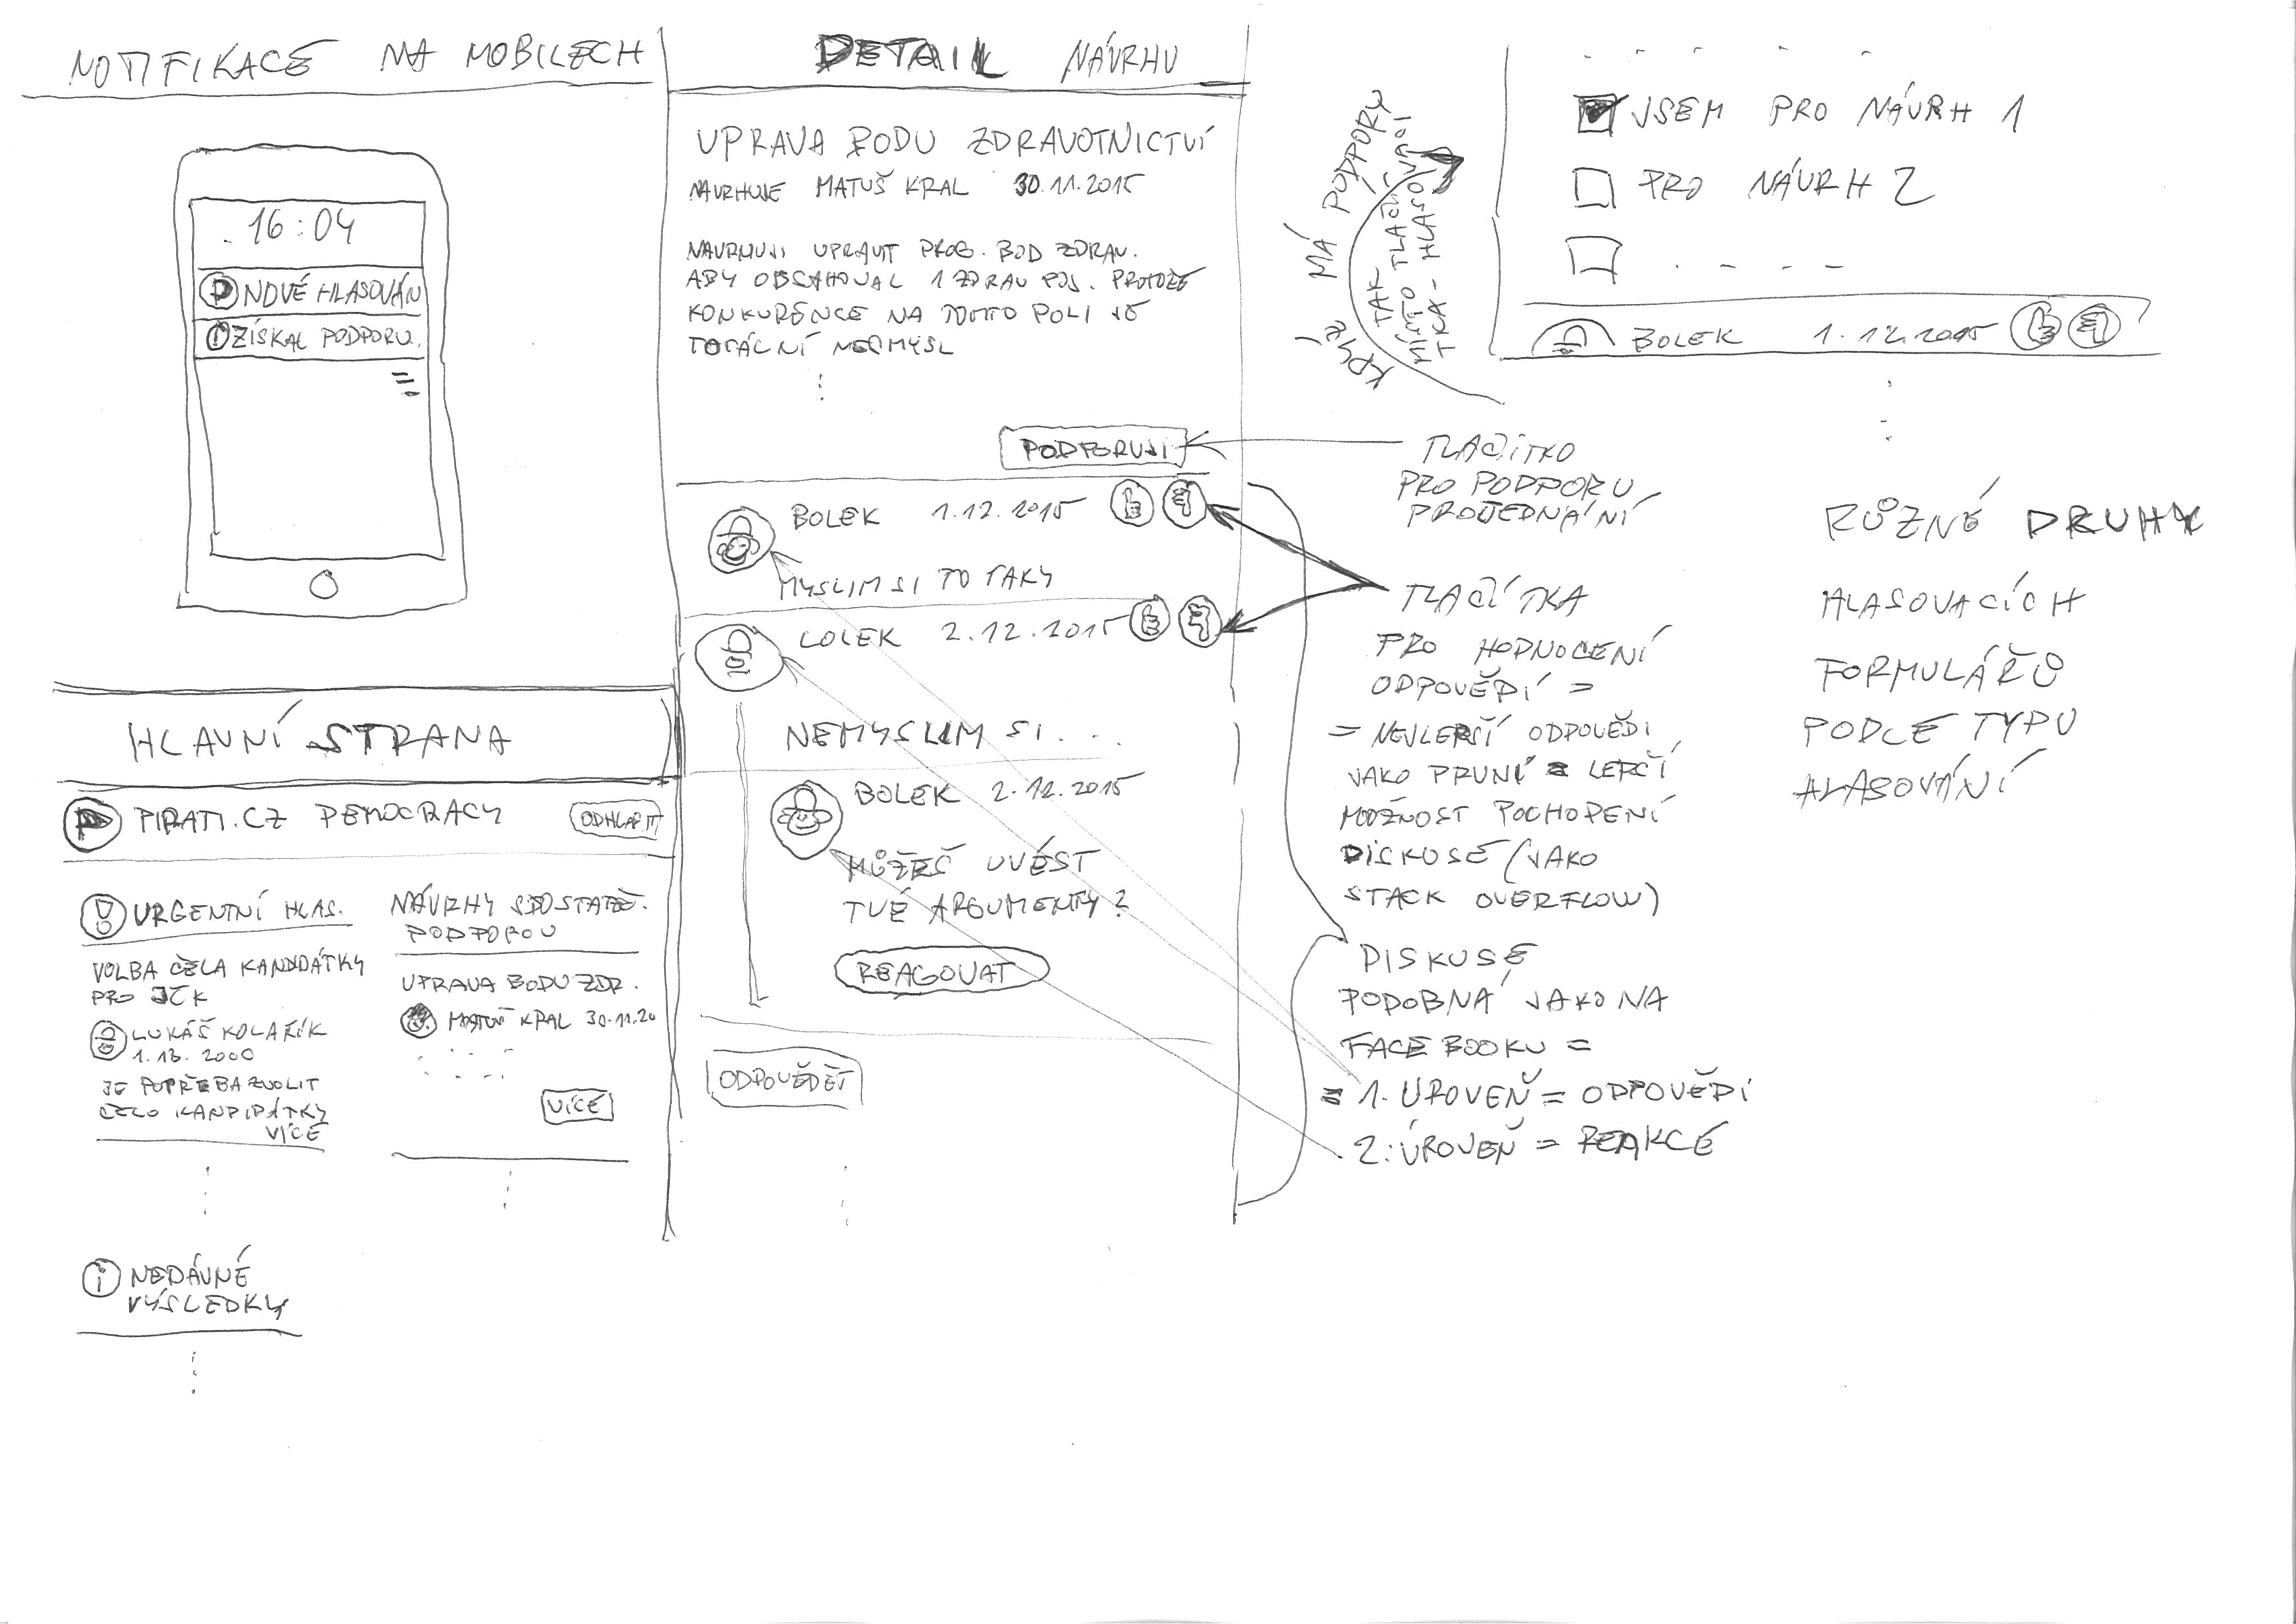 NOTIFIKACE NA MOBILECH
16:04
P NOVÉ HLASOVÁN
ZÍSKAL PODPORU.
HLAVNÍ STRANA
P PIRATI.CZ DEMOCRACY
ODHLÁSIT
! URGENTNÍ HLAS.
VOLBA ČELA KANDIDÁTKY
PRO JČK
LUKÁŠ KOLAŘÍK
1.13.2000
JE POTŘEBA ZVOLIT
ČELO KANDIDÁTKY
VÍCE
NÁVRHY S DOSTATEČ.
PODPOROU
UPRAVA BODU ZDR.
MATUŠ KRAL 30.11.20
VÍCE
i NEDÁVNÉ
VÝSLEDKY
DETAIL NÁVRHU
UPRAVA BODU ZDRAVOTNICTVÍ
NAVRHUJE MATUŠ KRAL 30.11.2015
NAVRHUJI UPRAVIT PROG. BOD ZDRAV.
ABY OBSAHOVAL 1 ZDRAV POJ. PROTOŽE
KONKURENCE NA TOMTO POLI JE
TOTÁLNÍ NESMYSL
PODPORUJI
BOLEK 1.12.2015
MYSLIM SI TO TAKY
LOLEK 2.12.2015
NEMYSLIM SI...
BOLEK 2.12.2015
MŮŽEŠ UVÉST
TVÉ ARGUMENTY?
REAGOVAT
ODPOVĚDĚT
KDYŽ MÁ PODPORU
TAK
MÍSTO TLAČÍ
TKA - HLASOVÁNÍ
TLAČÍTKO
PRO PODPORU
PROJEDNÁNÍ
TLAČÍTKA
PRO HODNOCENÍ
ODPOVĚDÍ =
= NEJLEPŠÍ ODPOVĚDI
JAKO PRVNÍ = LEPČÍ
MOŽNOST POCHOPENÍ
DISKUSE (JAKO
STACK OVERFLOW)
DISKUSE
PODOBNÁ JAKO NA
FACEBOOKU =
= 1. ÚROVEŇ = ODPOVĚDI
2. ÚROVEŇ = REAKCE
JSEM PRO NÁVRH 1
PRO NÁVRH 2
BOLEK 1.12.2015
RŮZNÉ DRUHY
HLASOVACÍCH
FORMULÁŘŮ
PODLE TYPU
HLASOVÁNÍ